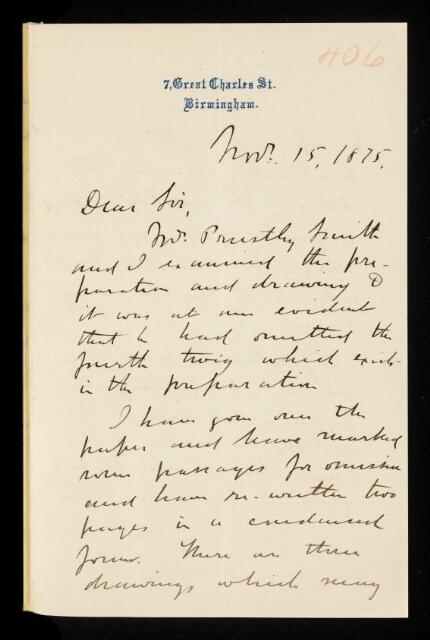 406
7, Great Charles St.
Birmingham.
Novr. 15, 1875.
Dear Sir,
Mr. Priestley Smith
and I examined the pre-
paration and drawing &
it was at once evident
that he had omitted the
fourth twig which exists
in the preparation
I have gone over the
paper and have marked
some passages for omission
and have re-written two
pages in a condensed
form. There are three
drawings which may